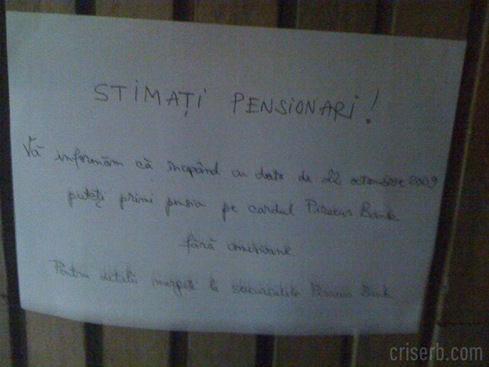 STIMAȚI PENSIONARI!
Vă informăm că începând cu data de 22 octombrie 2009
puteți primi pensia pe cardul Piraeus Bank
fără comisioane
Pentru detalii mergeți la sucursalele Piraeus Bank
criserb.com